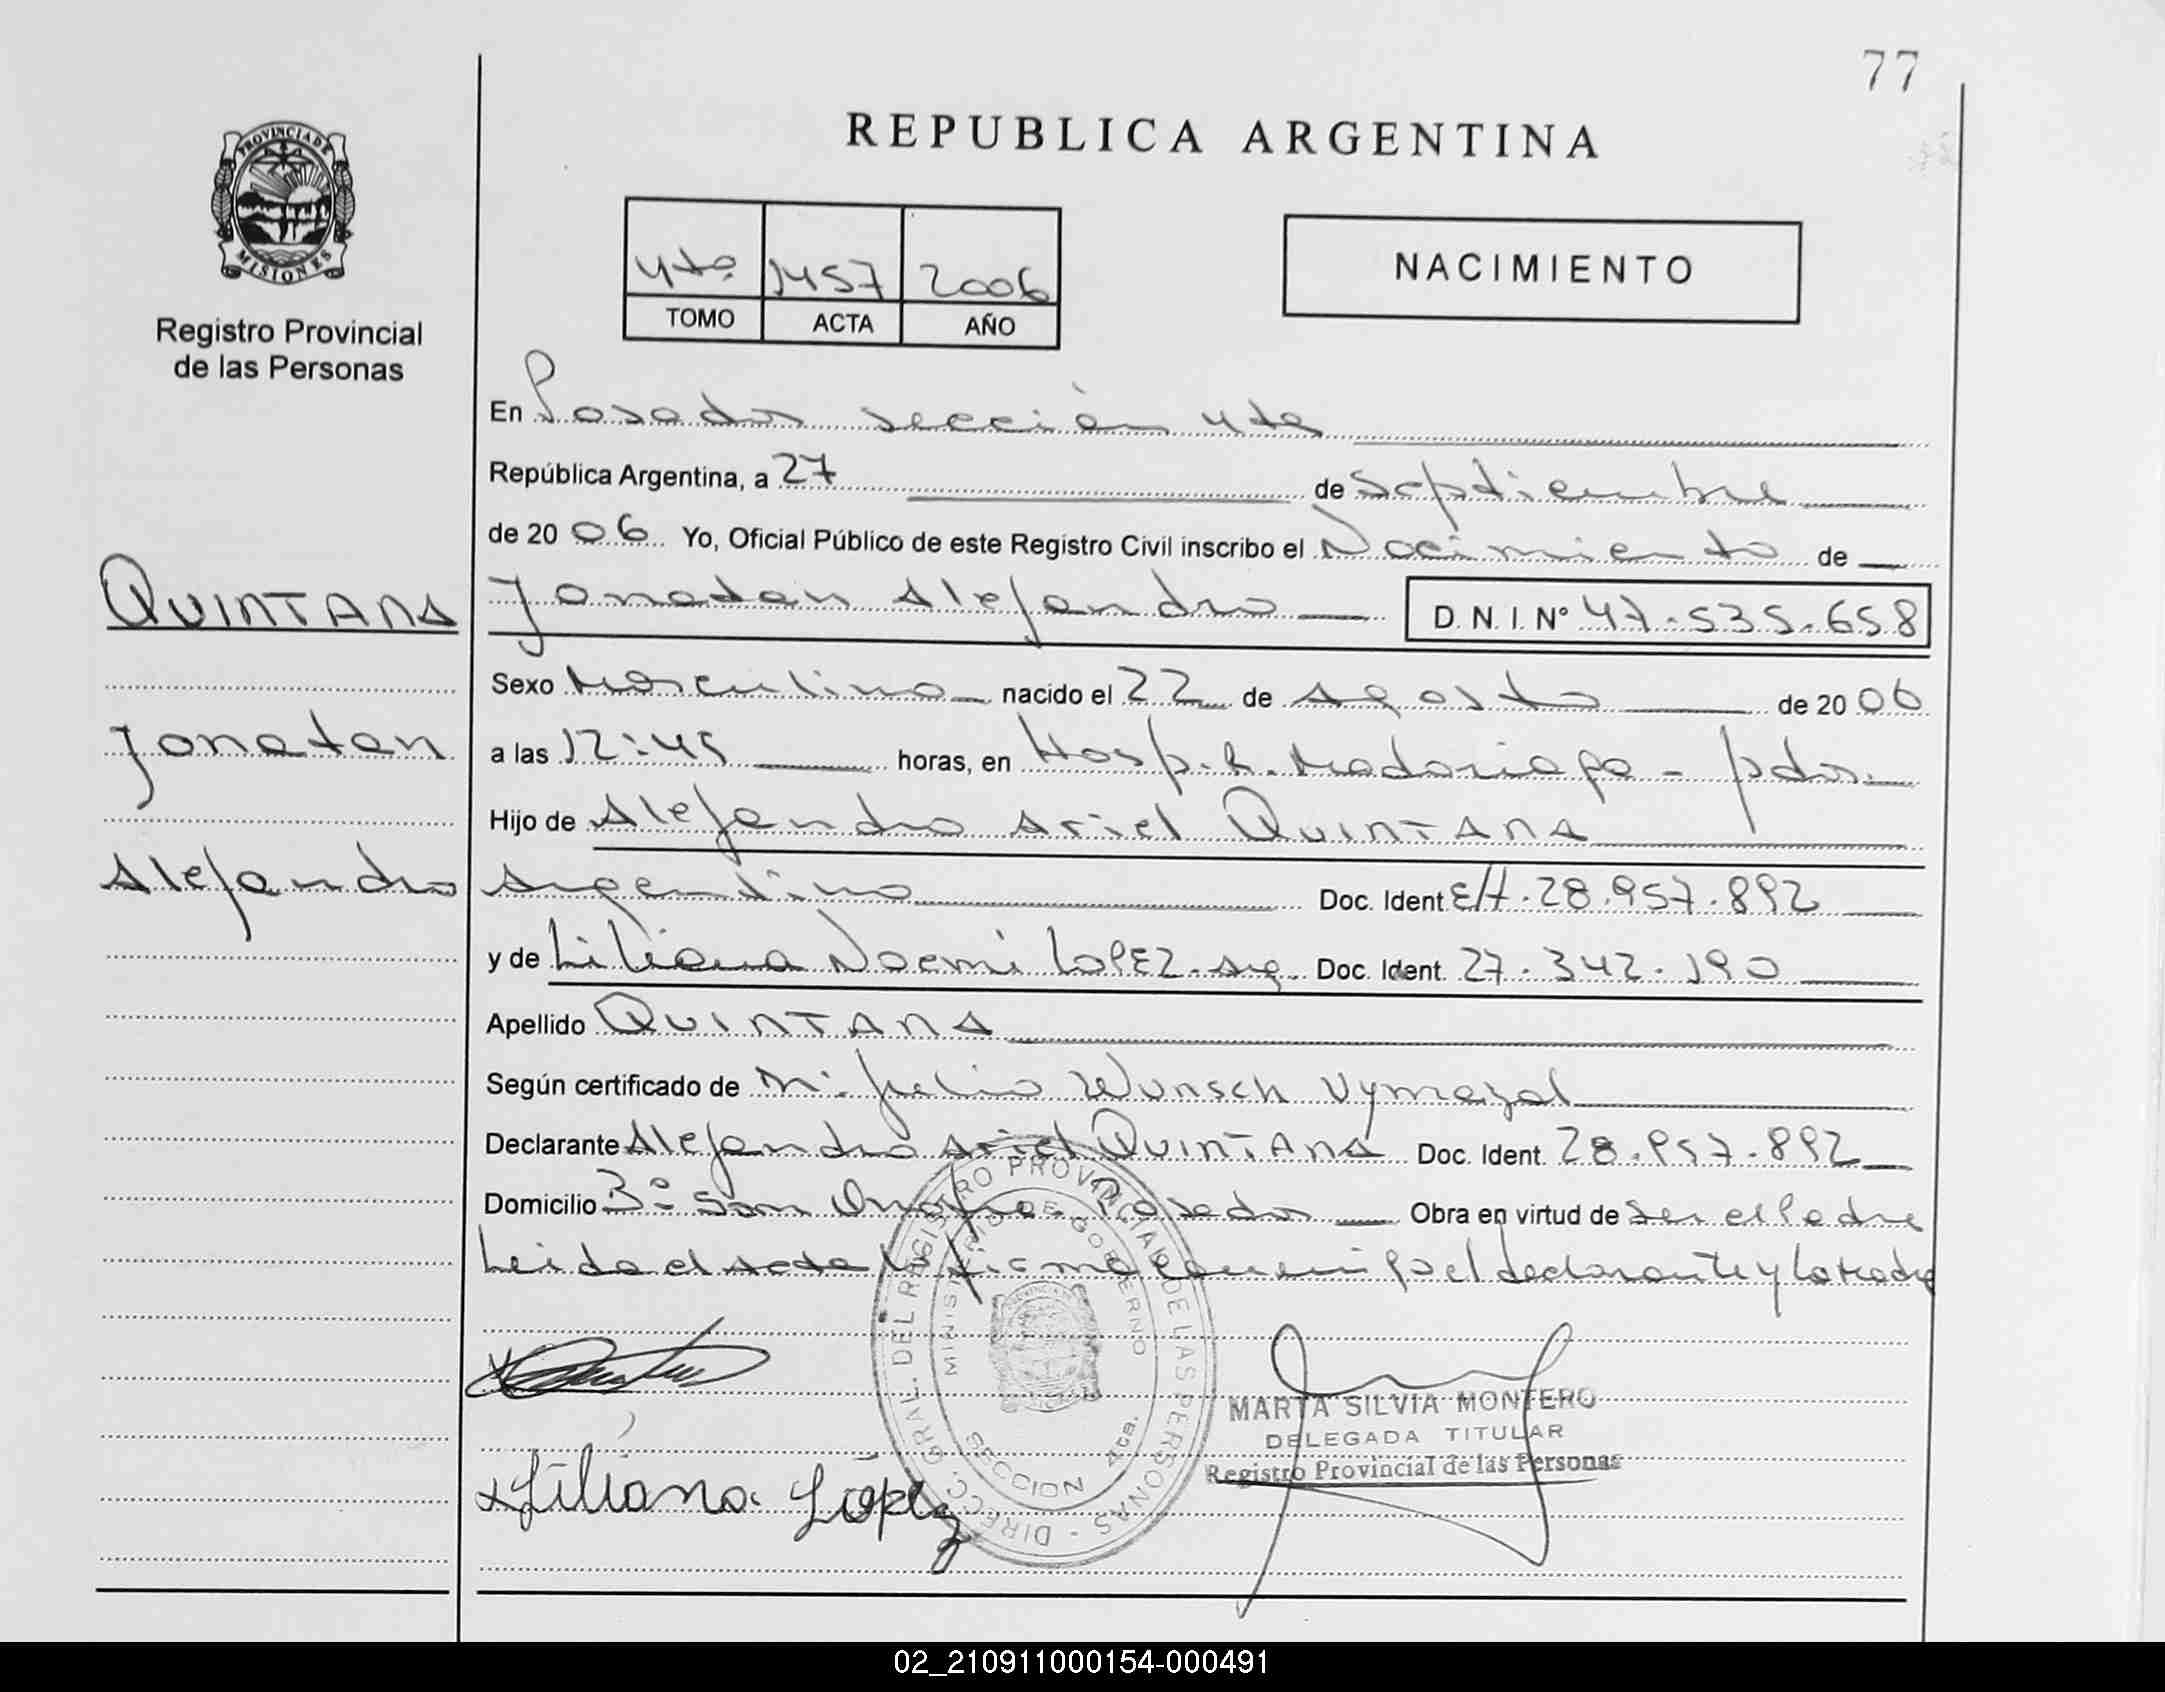 77
REPUBLICA ARGENTINA
PROVINCIA DE
MISIONES
Registro Provincial
de las Personas
4to 1457 2006
TOMO ACTA AÑO
NACIMIENTO
En Posadas sección 4ta
República Argentina, a 27 de Septiembre
de 2006 Yo, Oficial Público de este Registro Civil inscribo el Nacimiento de
QUINTANA
Jonatan
Alejandro
Jonatan Alejandro D. N. I. N° 47.535.658
Sexo Masculino nacido el 22 de Agosto de 2006
a las 12:45 horas, en Hosp. R. Madariaga - pdas.
Hijo de Alejandro Ariel QUINTANA
Argentino Doc. Ident E/t. 28.957.892
y de Liliana Noemi LOPEZ - Arg. Doc. Ident. 27.342.190
Apellido QUINTANA
Según certificado de M: Julio Wunsch Vymazal
Declarante Alejandro Ariel QUINTANA Doc. Ident. 28.957.892
Domicilio B° San Onofre. Posadas Obra en virtud de ser el Padre
Leida el acta la firma conmigo el declarante y la Madre
DIRECC. GRAL. DEL REGISTRO PROVINCIAL DE LAS PERSONAS -
MINISTERIO DE GOBIERNO
SECCION 4ta.
MARTA SILVIA MONTERO
DELEGADA TITULAR
Registro Provincial de las Personas
x Liliana López
02_210911000154-000491